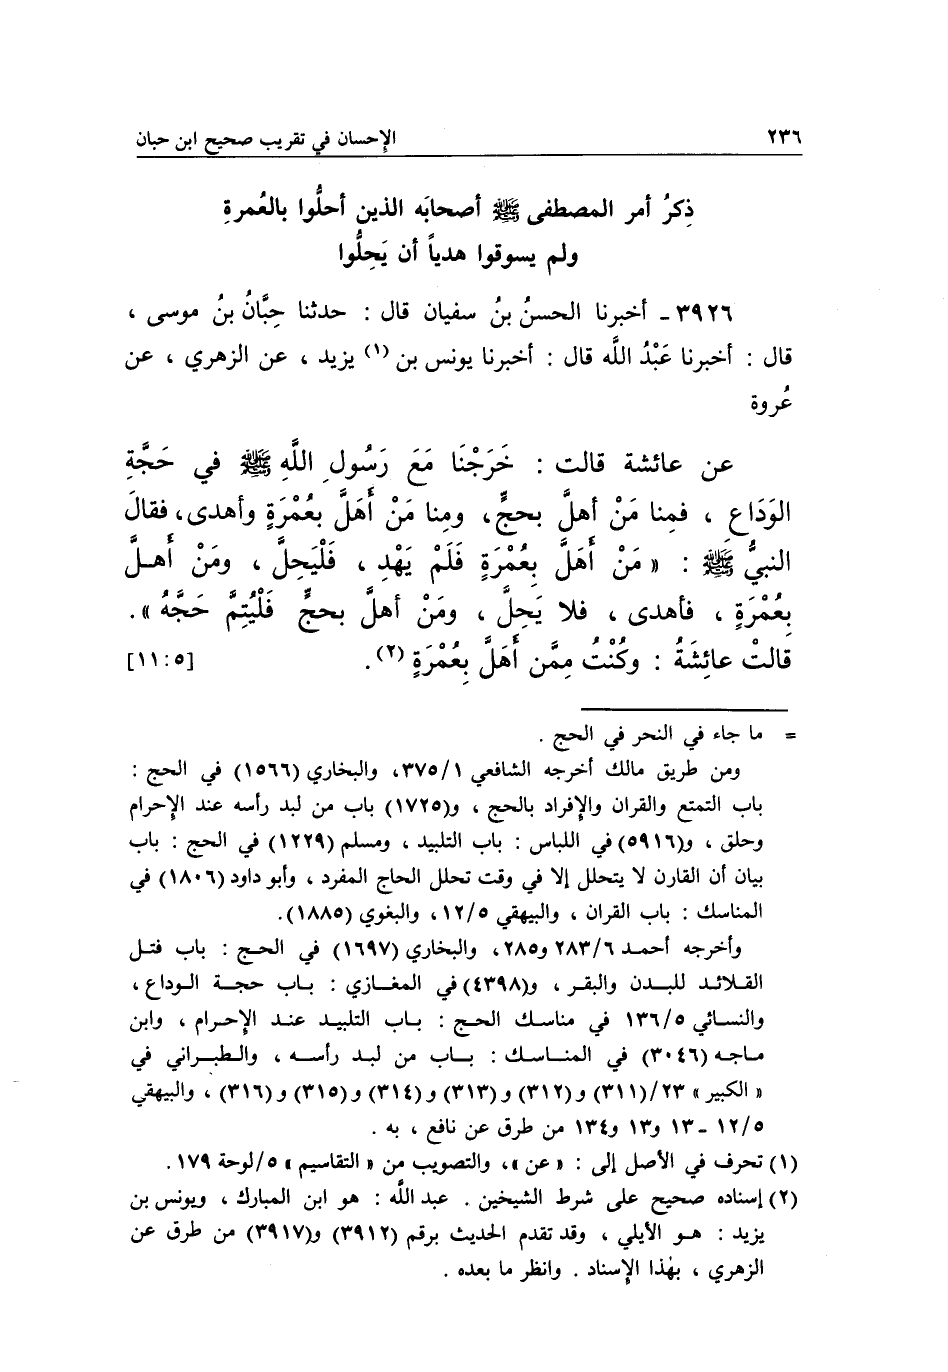 ٢٣٦ الإحسان في تقريب صحيح ابن حبان
ذِكرُ أمر المصطفى ﷺ أصحابَه الذين أحلُّوا بالعُمرةِ
ولم يسوقوا هدياً أن يَحِلُّوا
٣٩٢٦ - أخبرنا الحسنُ بنُ سفيان قال : حدثنا حِبَّانُ بنُ موسى ،
قال : أخبرنا عَبْدُ اللَّه قال : أخبرنا يونس بن (١) يزيد ، عن الزهري ، عن
عُروة
عن عائشة قالت : خَرَجْنَا مَعَ رَسُولِ اللَّهِ ﷺ في حَجَّةِ
الوَدَاعِ ، فمِنا مَنْ أهلَّ بحجٍّ، ومِنا مَنْ أَهَلَّ بعُمْرَةٍ وأهدى، فقالَ
النبيُّ ﷺ : « مَنْ أَهَلَّ بِعُمْرَةٍ فَلَمْ يَهْدِ ، فَلْيَحِلَّ ، ومَنْ أهلَّ
بِعُمْرَةٍ ، فأهدى ، فلا يَحِلَّ ، ومَنْ أهلَّ بحجٍّ فَلْيُتِمَّ حَجَّهُ ».
قالتْ عائِشَةُ : وكُنْتُ مِمَّن أَهَلَّ بِعُمْرَةٍ (٢). [٥ : ١١]
= ما جاء في النحر في الحج .
ومن طريق مالك أخرجه الشافعي ٣٧٥/١، والبخاري (١٥٦٦) في الحج :
باب التمتع والقران والإفراد بالحج ، و(١٧٢٥) باب من لبد رأسه عند الإحرام
وحلق ، و(٥٩١٦) في اللباس : باب التلبيد ، ومسلم (١٢٢٩) في الحج : باب
بيان أن القارن لا يتحلل إلا في وقت تحلل الحاج المفرد ، وأبو داود (١٨٠٦) في
المناسك : باب القران ، والبيهقي ١٢/٥، والبغوي (١٨٨٥).
وأخرجه أحمد ٢٨٣/٦ و٢٨٥، والبخاري (١٦٩٧) في الحج : باب فتل
القلائد للبدن والبقر ، و(٤٣٩٨) في المغازي : باب حجة الوداع ،
والنسائي ١٣٦/٥ في مناسك الحج : باب التلبيد عند الإحرام ، وابن
ماجه (٣٠٤٦) في المناسك : باب من لبد رأسه ، والطبراني في
« الكبير » ٢٣/(٣١١) و(٣١٢) و(٣١٣) و(٣١٤) و(٣١٥) و(٣١٦) ، والبيهقي
١٢/٥ - ١٣ و١٣ و١٣٤ من طرق عن نافع ، به .
(١) تحرف في الأصل إلى : « عن »، والتصويب من « التقاسيم » ٥/لوحة ١٧٩ .
(٢) إسناده صحيح على شرط الشيخين . عبد اللَّه : هو ابن المبارك ، ويونس بن
يزيد : هو الأيلي ، وقد تقدم الحديث برقم (٣٩١٢) و(٣٩١٧) من طرق عن
الزهري ، بهٰذا الإسناد . وانظر ما بعده .